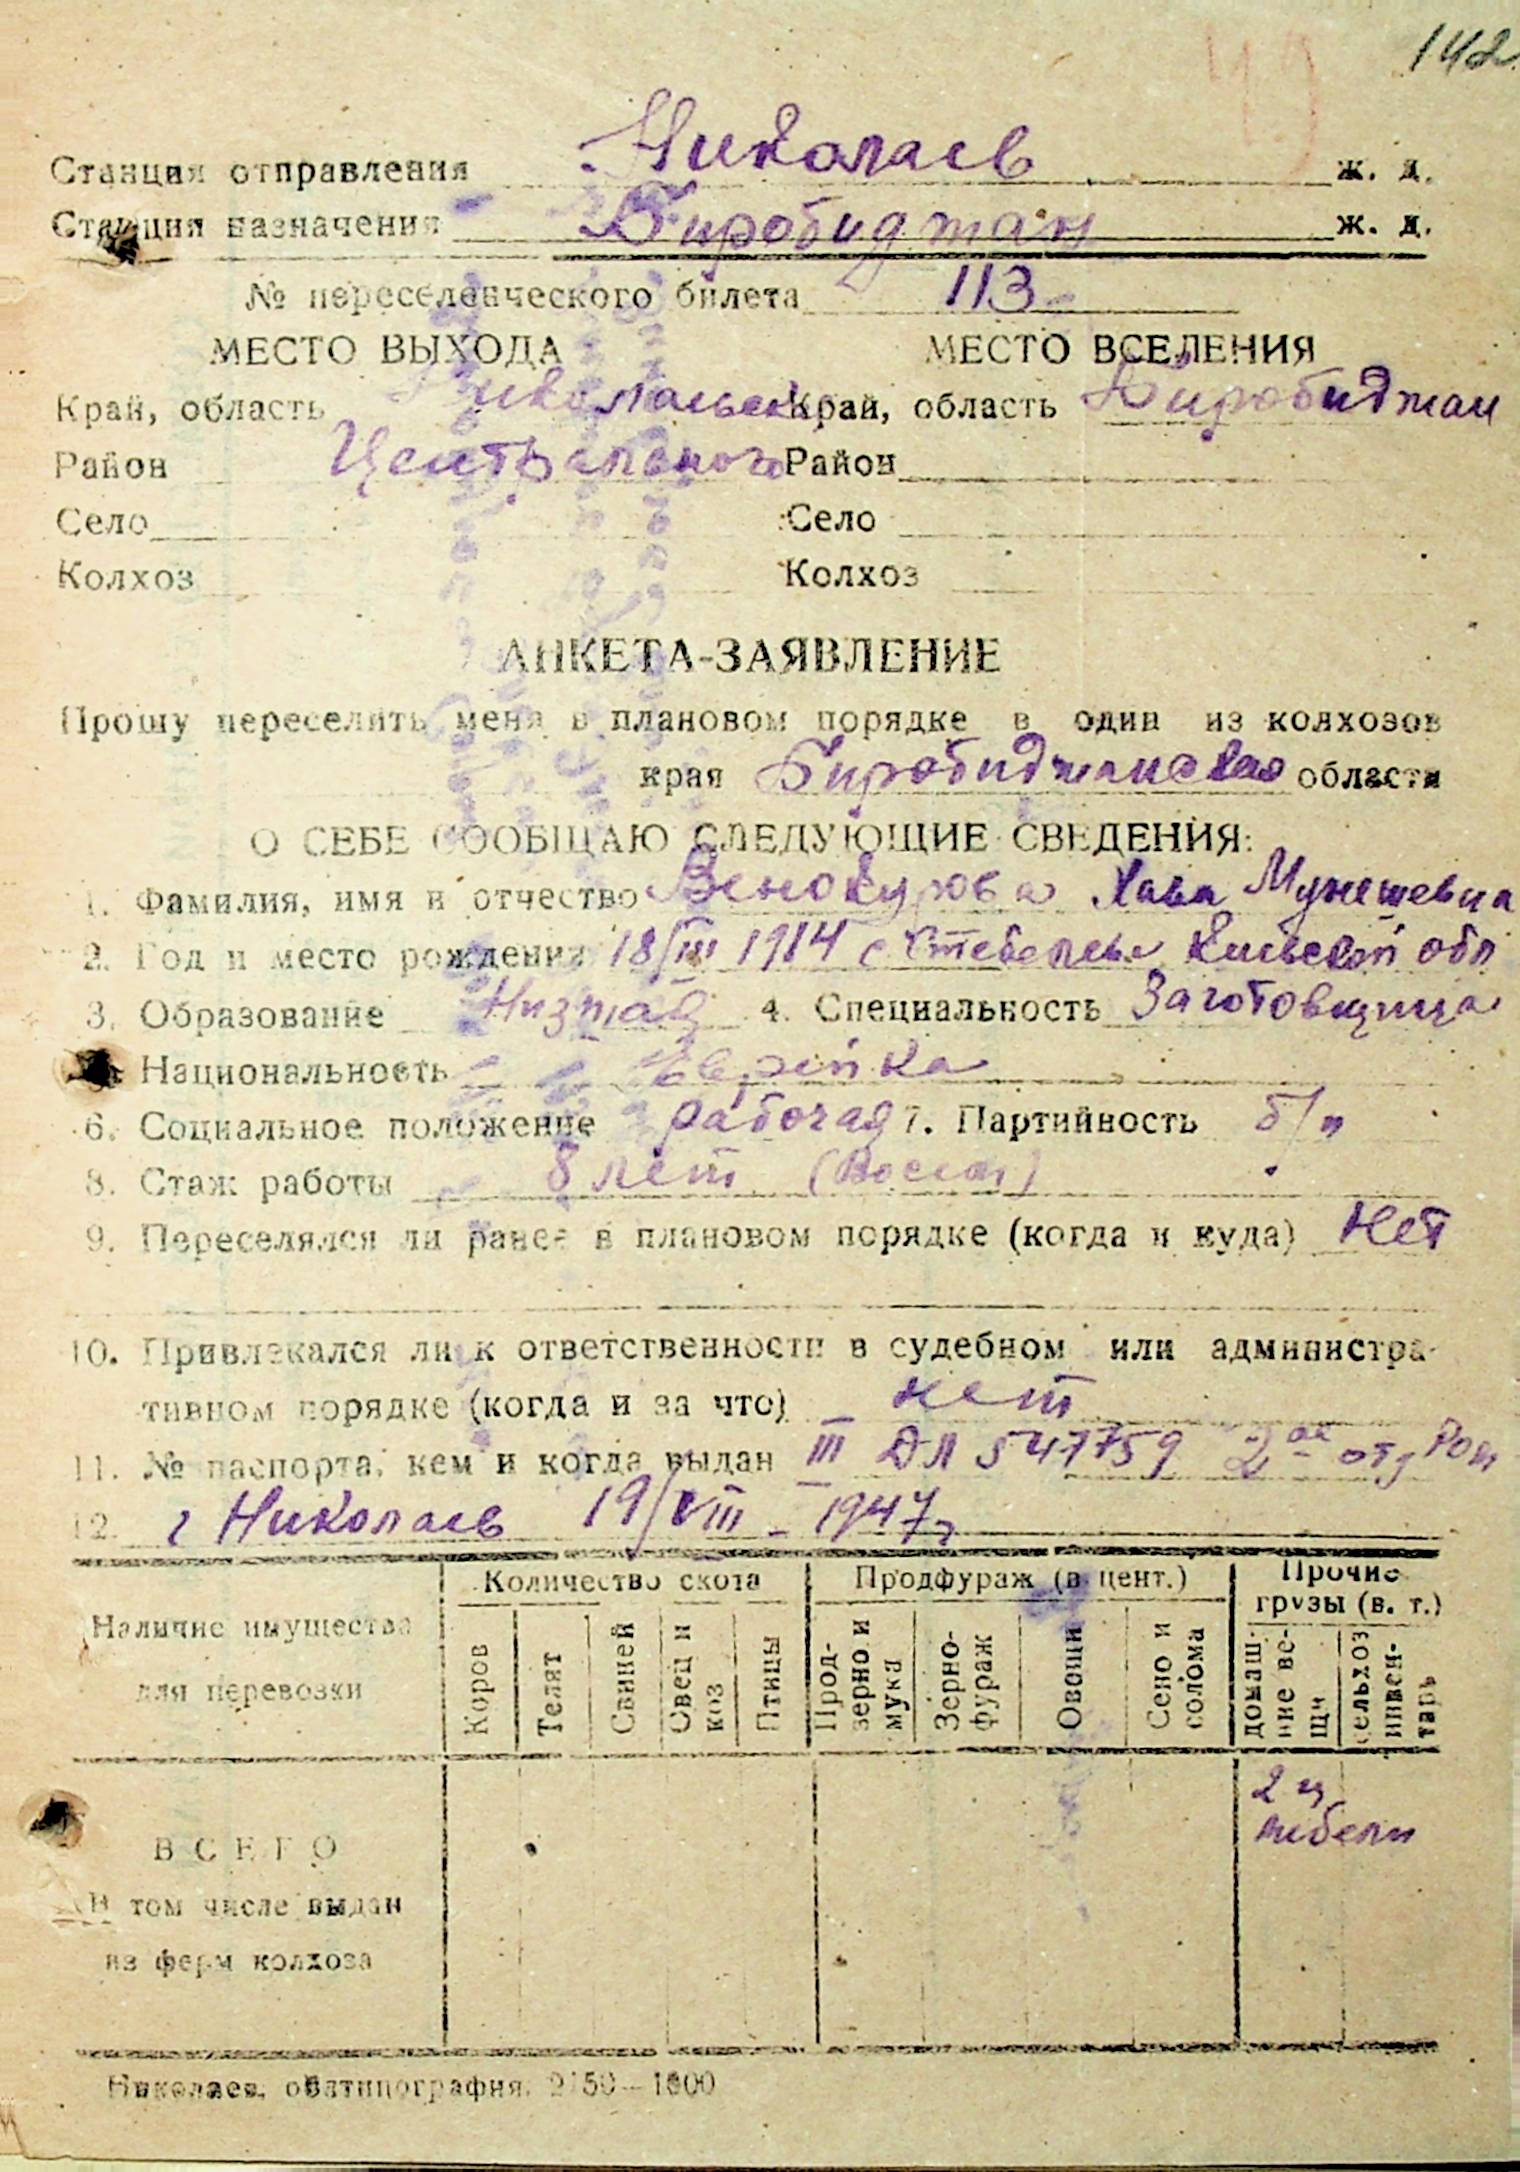 142
49
Станция отправления Николаев ж. д.
Станция назначения Биробиджан ж. д.
№ переселенческого билета 113
МЕСТО ВЫХОДА МЕСТО ВСЕЛЕНИЯ
Край, область Николаевск Край, область Биробиджан
Район Центрального Район
Село Село
Колхоз Колхоз
АНКЕТА-ЗАЯВЛЕНИЕ
Прошу переселить меня в плановом порядке в один из колхозов
края Биробиджанская области
О СЕБЕ СООБЩАЮ СЛЕДУЮЩИЕ СВЕДЕНИЯ:
1. Фамилия, имя и отчество Венокурова Хава Мунишевна
2. Год и место рождения 18/III 1914 с Стебелев Киевской обл
3. Образование Низшая 4. Специальность Заготовщица
Национальность Еврейка
6. Социальное положение рабочая 7. Партийность б/п
8. Стаж работы 8 лет (Восем)
9. Переселялся ли ранее в плановом порядке (когда и куда) Нет
10. Привлекался ли к ответственности в судебном или администра-
тивном порядке (когда и за что) нет
11. № паспорта, кем и когда выдан III ДЛ 547759 2ое отд
12. г Николаев 19/VIII - 1947г
Наличие имущества для перевозки
Количество скота Продфураж (в цент.) Прочие грузы (в. т.)
Коров Телят Свиней Овец и коз Птицы Прод-зерно и мука Зерно-фураж Овощи Сено и солома домаш-ние ве-щи сельхоз инвен-тарь
ВСЕГО 2 ц мебели
В том числе выдан
из ферм колхоза
Николаев, облтипография. 2150—1000